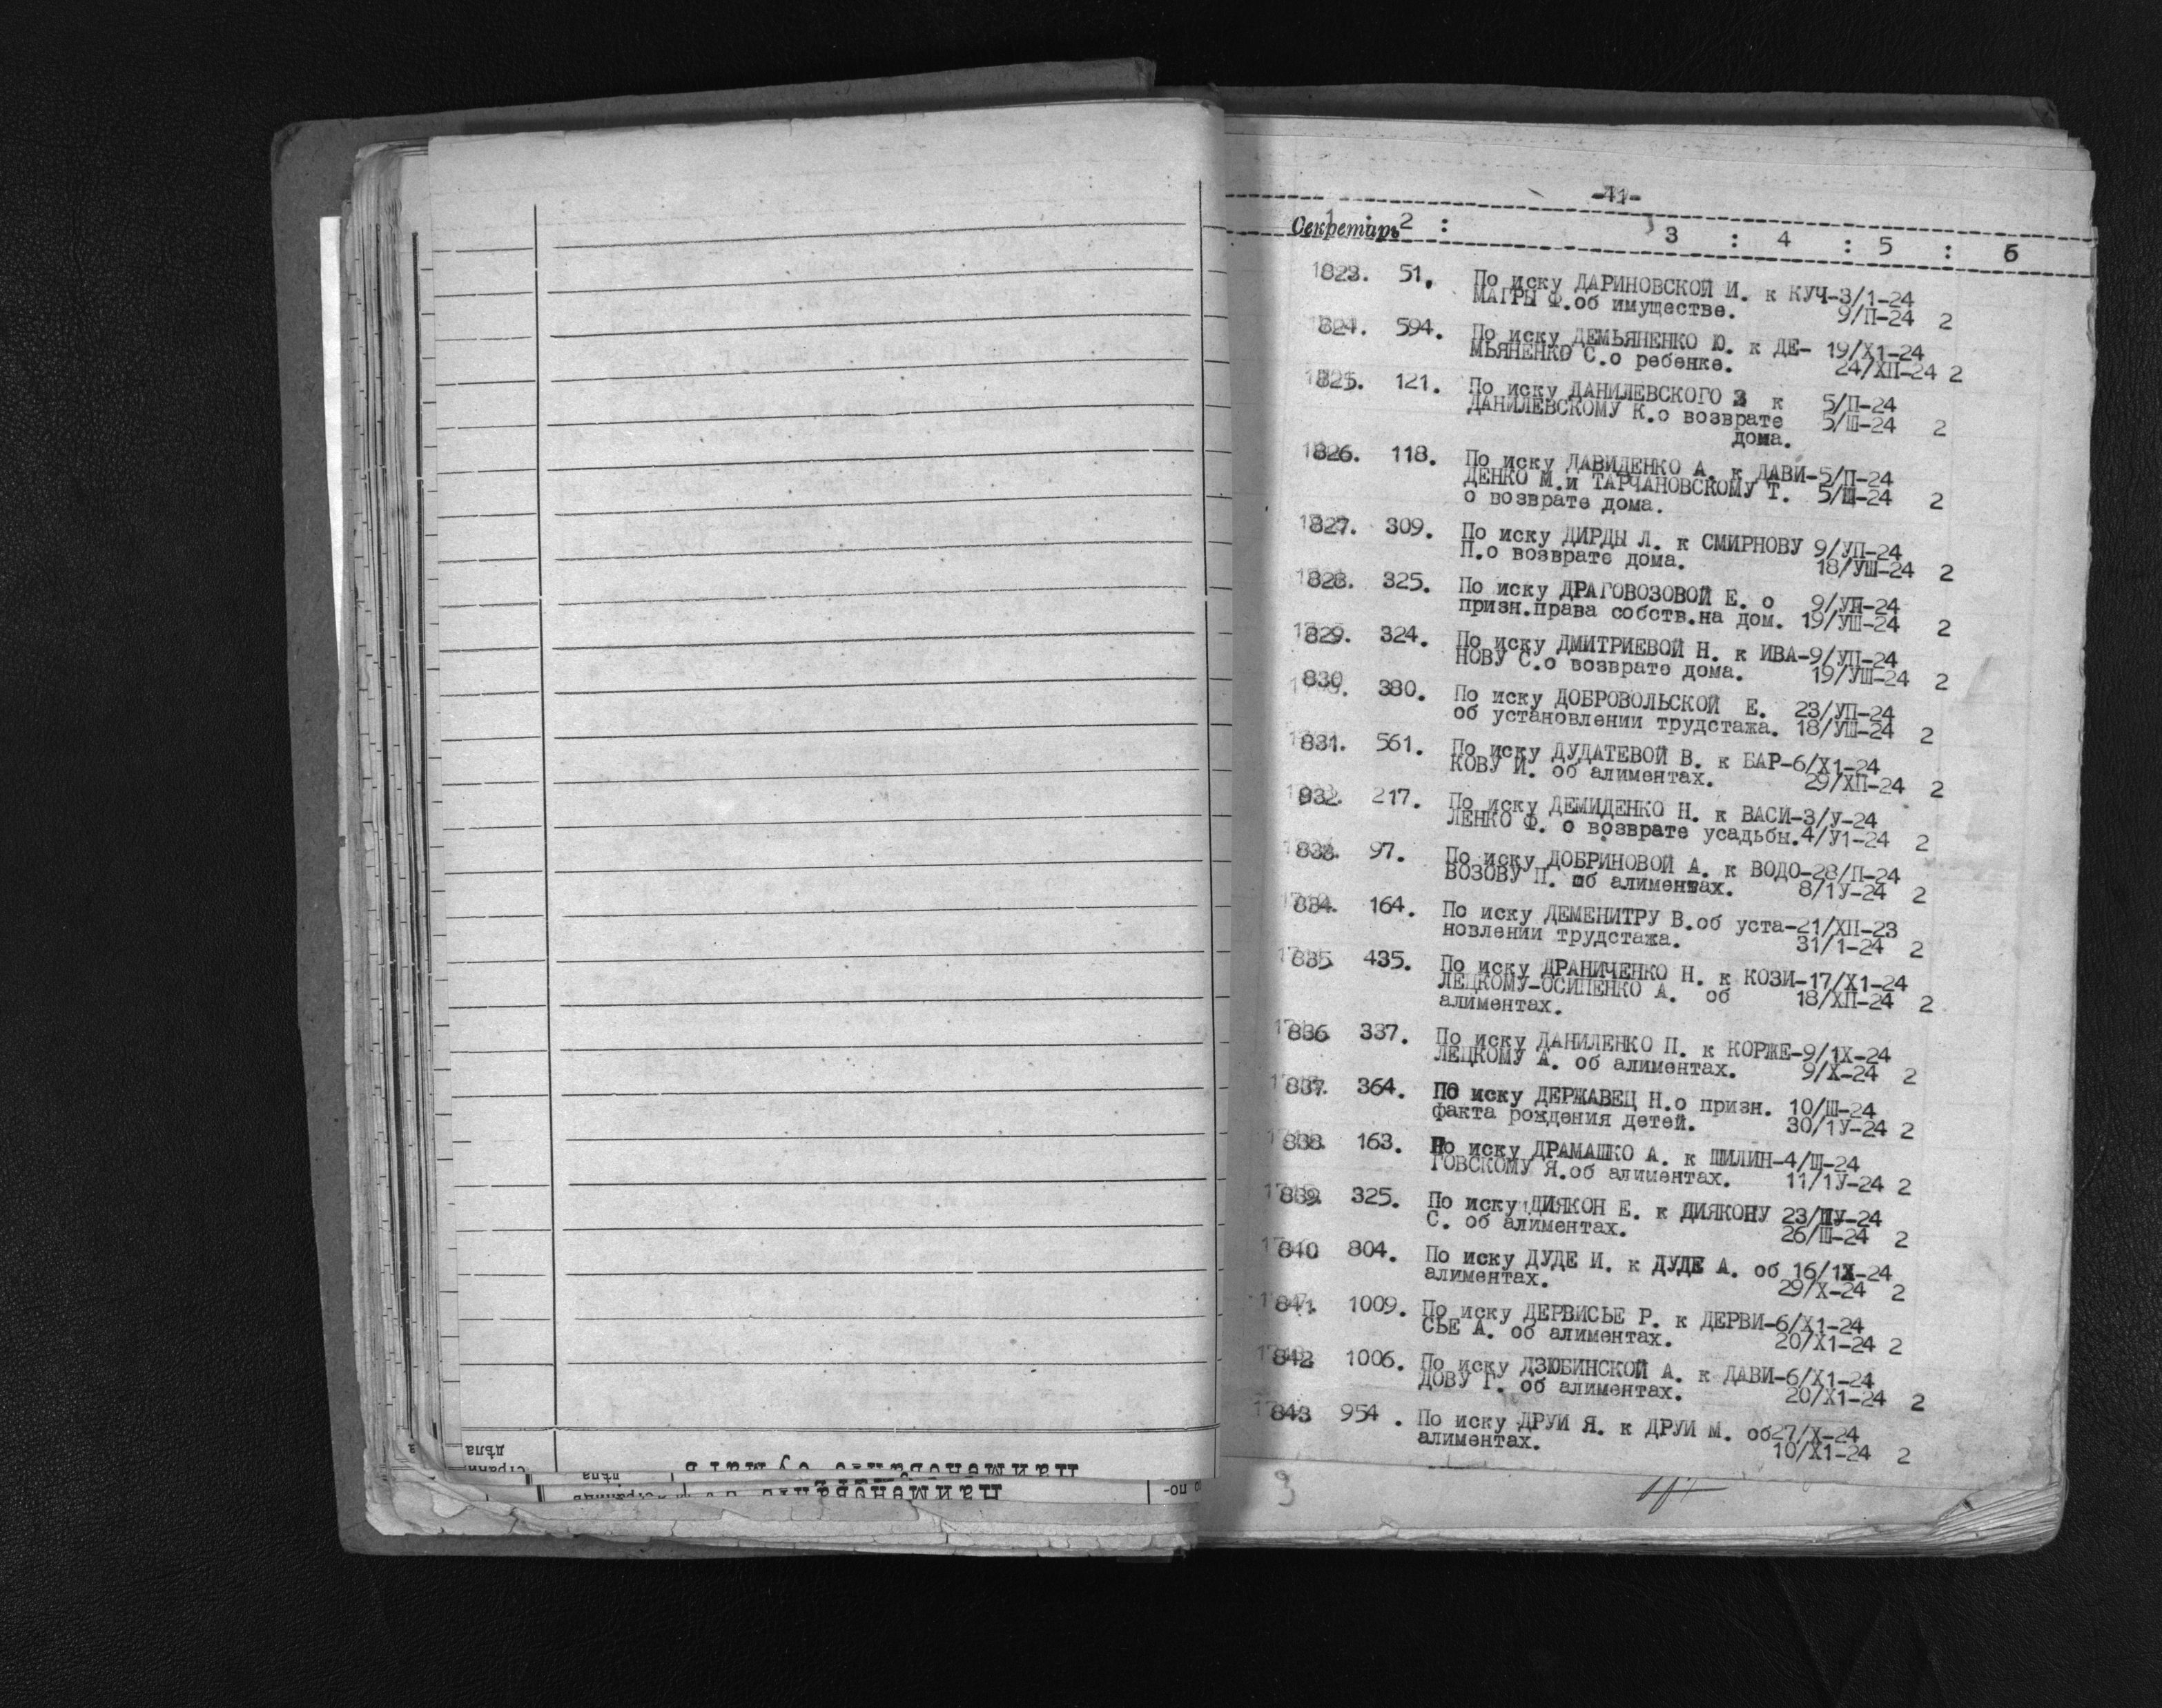 -41-
Секретарь 2 : 3 : 4 : 5 : 6
823. 51. По иску ДАРИНОВСКОЙ И. к КУЧ-3/1-24
МАГРЫ Ф.об имуществе. 9/П-24 2
824. 594. По иску ДЕМЬЯНЕНКО Ю. к ДЕ- 19/Х1-24
МЬЯНЕНКО С.о ребенке. 24/ХП-24 2
825. 121. По иску ДАНИЛЕВСКОГО З к 5/П-24
ДАНИЛЕВСКОМУ К.о возврате 5/Ш-24 2
дома.
826. 118. По иску ДАВИДЕНКО А. к ДАВИ-5/П-24
ДЕНКО М.и ТАРЧАНОВСКОМУ Т. 5/Ш-24 2
о возврате дома.
827. 309. По иску ДИРДЫ Л. к СМИРНОВУ 9/УП-24
П.о возврате дома. 18/УШ-24 2
828. 325. По иску ДРАГОВОЗОВОЙ Е. о 9/УП-24
призн.права собств.на дом. 19/УШ-24 2
829. 324. По иску ДМИТРИЕВОЙ Н. к ИВА-9/УП-24
НОВУ С.о возврате дома. 19/УШ-24 2
830 380. По иску ДОБРОВОЛЬСКОЙ Е. 23/УП-24
об установлении трудстажа. 18/УШ-24 2
831. 561. По иску ДУДАТЕВОЙ В. к БАР-6/Х1-24
КОВУ И. об алиментах. 29/ХП-24 2
832. 217. По иску ДЕМИДЕНКО Н. к ВАСИ-3/У-24
ЛЕНКО Ф. о возврате усадьбы.4/У1-24 2
833. 97. По иску ДОБРИНОВОЙ А. к ВОДО-28/П-24
ВОЗОВУ П. об алиментах. 8/1У-24 2
834. 164. По иску ДЕМЕНИТРУ В.об уста-21/ХП-23
новлении трудстажа. 31/1-24 2
835 435. По иску ДРАНИЧЕНКО Н. к КОЗИ-17/Х1-24
ЛЕЦКОМУ-ОСИПЕНКО А. об 18/ХП-24 2
алиментах.
836 337. По иску ДАНИЛЕНКО П. к КОРЖЕ-9/1Х-24
ЛЕЦКОМУ А. об алиментах. 9/Х-24 2
837. 364. По иску ДЕРЖАВЕЦ Н.о призн. 10/Ш-24
факта рождения детей. 30/1У-24 2
838 163. По иску ДРАМАШКО А. к ШИЛИН-4/Ш-24
ГОВСКОМУ Я.об алиментах. 11/1У-24 2
839. 325. По иску ДИЯКОН Е. к ДИЯКОНУ 23/1У-24
С. об алиментах. 26/Ш-24 2
840 804. По иску ДУДЕ И. к ДУДЕ А. об 16/1Х-24
алиментах. 29/Х-24 2
841. 1009. По иску ДЕРВИСЬЕ Р. к ДЕРВИ-6/Х1-24
СЬЕ А. об алиментах. 20/Х1-24 2
842 1006. По иску ДЗЮБИНСКОЙ А. к ДАВИ-6/Х1-24
ДОВУ Г. об алиментах. 20/Х1-24 2
843 954 . По иску ДРУИ Я. к ДРУИ М. об27/Х-24
алиментах. 10/Х1-24 2
3